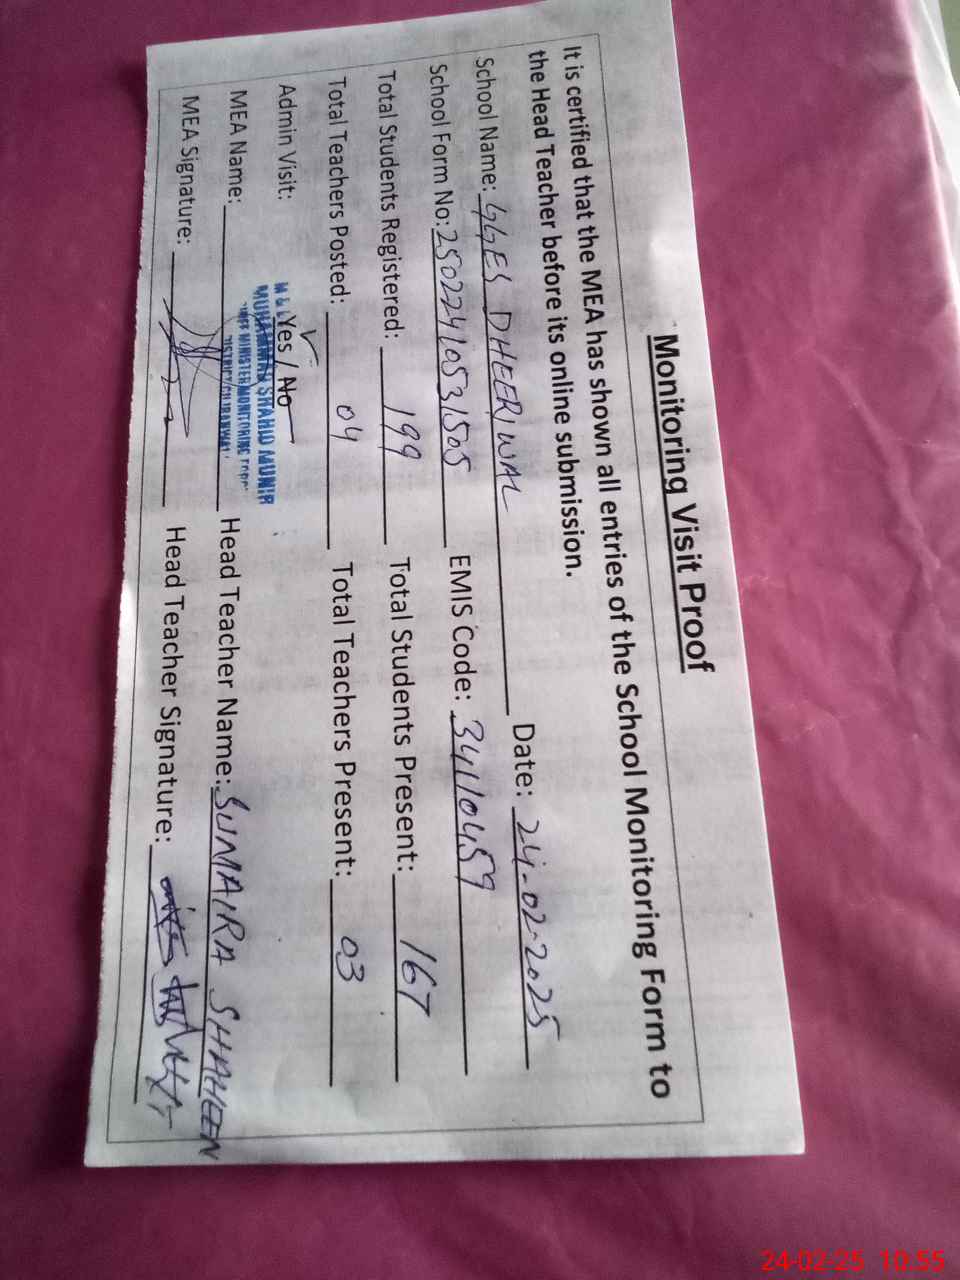 Monitoring Visit Proof
It is certified that the MEA has shown all entries of the School Monitoring Form to
the Head Teacher before its online submission.
School Name: GGES DHEERIWAL Date: 24-02-2025
School Form No: 25022410531505 EMIS Code: 34110459
Total Students Registered: 199 Total Students Present: 167
Total Teachers Posted: 04 Total Teachers Present: 03
Admin Visit: Yes / No
MUHAMMAD SHAHID MUNIR
MEA Name: Head Teacher Name: SUMAIRA SHAHEEN
CHIEF MINISTER MONITORING
DISTRICT
MEA Signature: Head Teacher Signature:
24-02-25 10:55